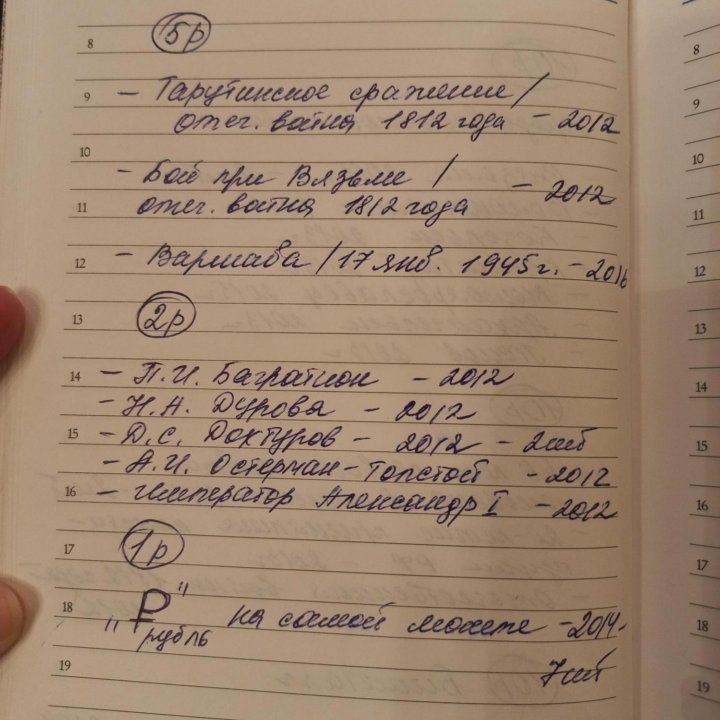 8 5р
9 – Тарутинское сражение /
отеч. война 1812 года – 2012
10
– Бой при Вязьме / – 2012
11 отеч. война 1812 года
12 – Варшава / 17 янв. 1945 г. – 2016
13 2р
14 – П.И. Багратион – 2012
– Н.А. Дурова – 2012
15 – Д.С. Дохтуров – 2012 – 2шт
– А.И. Остерман-Толстой – 2012
16 – Император Александр I – 2012
17 1р
18 „₽" на самой монете – 2014 –
рубль
19 7шт
8
9
10
11
12
13
14
15
16
17
18
19